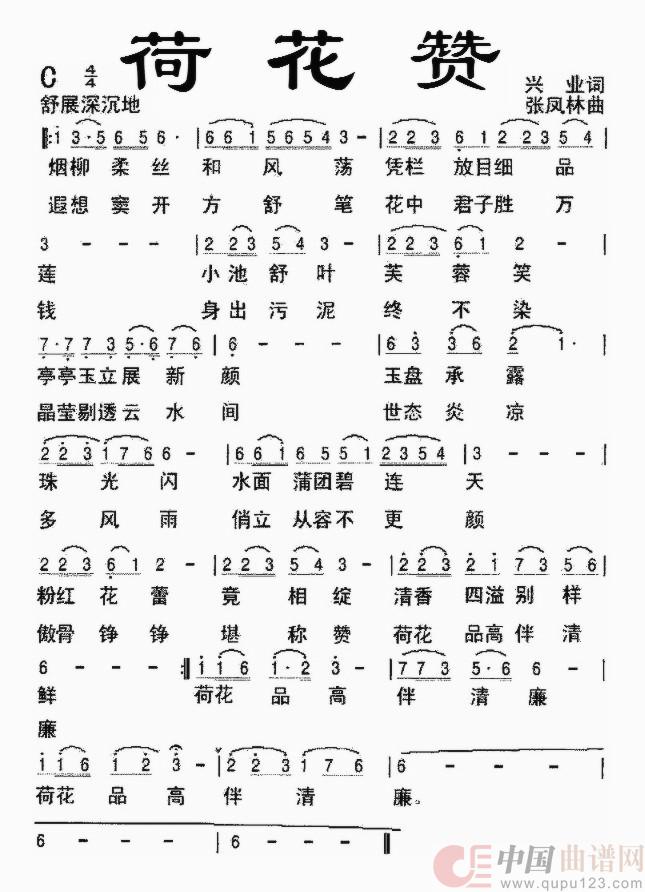 荷花赞
C 4/4
兴 业词
舒展深沉地
张凤林曲
‖: i 3·5 6 5 6 5 6· | 6 6 1 5 6 5 4 3 - | 2 2 3 6 1 2 2 3 5 4 |
烟柳 柔 丝 和 风 荡 凭栏 放目细 品
遐想 窦 开 方 舒 笔 花中 君子胜 万
3 - - - | 2 2 3 5 4 3 - | 2 2 3 6 1 2 - |
莲 小池 舒 叶 芙 蓉 笑
钱 身出 污 泥 终 不 染
7·7 7 3 5·6 7 6 | 6 - - - | 6 3 3 6 2 1· |
亭亭玉立展 新 颜 玉盘 承 露
晶莹剔透云 水 间 世态 炎 凉
2 2 3 1 7 6 6 - | 6 6 1 6 5 5 1 2 3 5 4 | 3 - - - |
珠 光 闪 水面 蒲团碧 连 天
多 风 雨 俏立 从容不 更 颜
2 2 3 6 1 2 - | 2 2 3 5 4 3 - | 2 2 3 2 1 7 3 5 6 |
粉红 花 蕾 竞 相 绽 清香 四溢别 样
傲骨 铮 铮 堪 称 赞 荷花 品高伴 清
6 - - - :‖ i i 6 i·2 3 - | 7 7 3 5·6 6 - |
鲜 荷花 品 高 伴 清 廉
廉
i i 6 i 2 3 - | 2 2 3 1 7 6 | 6 - - - |
荷花 品 高 伴 清 廉。
6 - - - | 6 - - - ‖
中国曲谱网
www.qupu123.com